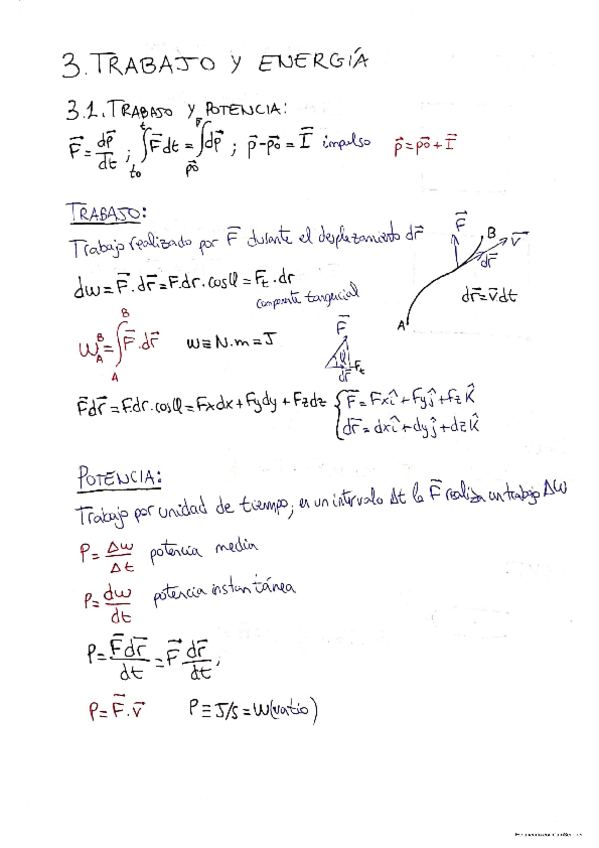 3. TRABAJO Y ENERGÍA
3.1. TRABAJO Y POTENCIA:
F⃗ = dp⃗/dt ; ∫_{t0}^{t} F⃗dt = ∫_{p⃗0}^{p⃗} dp⃗ ; p⃗-p⃗0 = I⃗ impulso p⃗ = p⃗0 + I⃗
TRABAJO:
Trabajo realizado por F⃗ durante el desplazamiento dr⃗
dw = F⃗.dr⃗ = F.dr.cosφ = Ft.dr
componente tangencial
F⃗ B v⃗ dr⃗ A
dr⃗ = v⃗dt
W_A^B = ∫_A^B F⃗.dr⃗ w ≡ N.m = J
F⃗ φ Ft dr⃗
F⃗dr⃗ = F.dr.cosφ = Fxdx + Fydy + Fzdz { F⃗ = Fxî + Fyĵ + Fzk̂
dr⃗ = dxî + dyĵ + dzk̂
POTENCIA:
Trabajo por unidad de tiempo; en un intervalo Δt la F⃗ realiza un trabajo ΔW
P = Δw/Δt potencia media
P = dw/dt potencia instantánea
P = F⃗dr⃗/dt = F⃗ dr⃗/dt ;
P = F⃗.v⃗ P ≡ J/s = W(vatio)